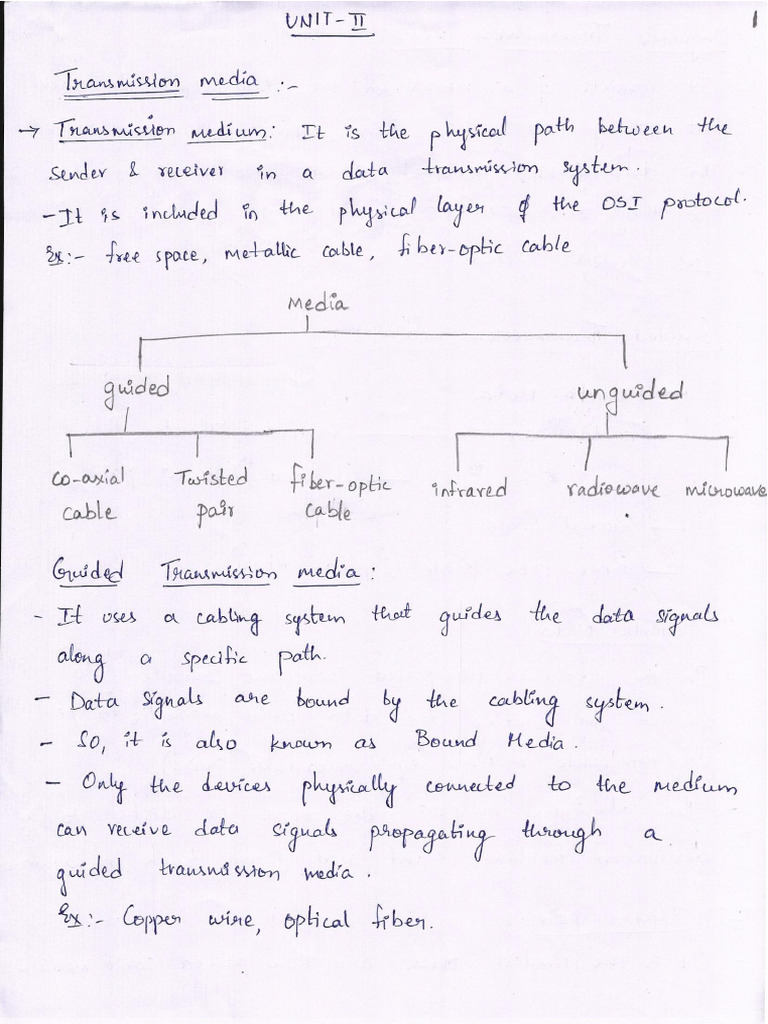 UNIT-II
1
Transmission media :-
→ Transmission medium: It is the physical path between the
sender & receiver in a data transmission system.
- It is included in the physical layer of the OSI protocol.
Ex:- free space, metallic cable, fiber-optic cable
Media
guided unguided
co-axial Twisted fiber-optic infrared radiowave microwave
cable pair cable
Guided Transmission media :
- It uses a cabling system that guides the data signals
along a specific path.
- Data signals are bound by the cabling system.
- So, it is also known as Bound Media.
- Only the devices physically connected to the medium
can receive data signals propagating through a
guided transmission media.
Ex:- Copper wire, optical fiber.